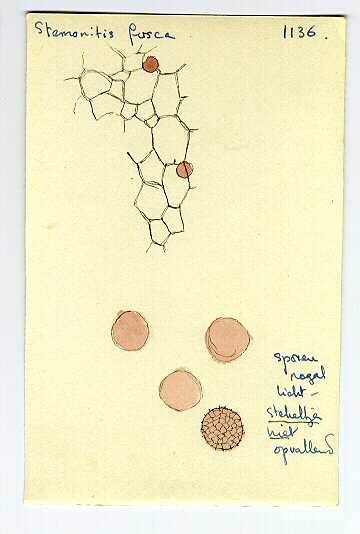 Stemonitis fusca 1136.
sporen
nogal
licht –
stekeltjes
niet
opvallend